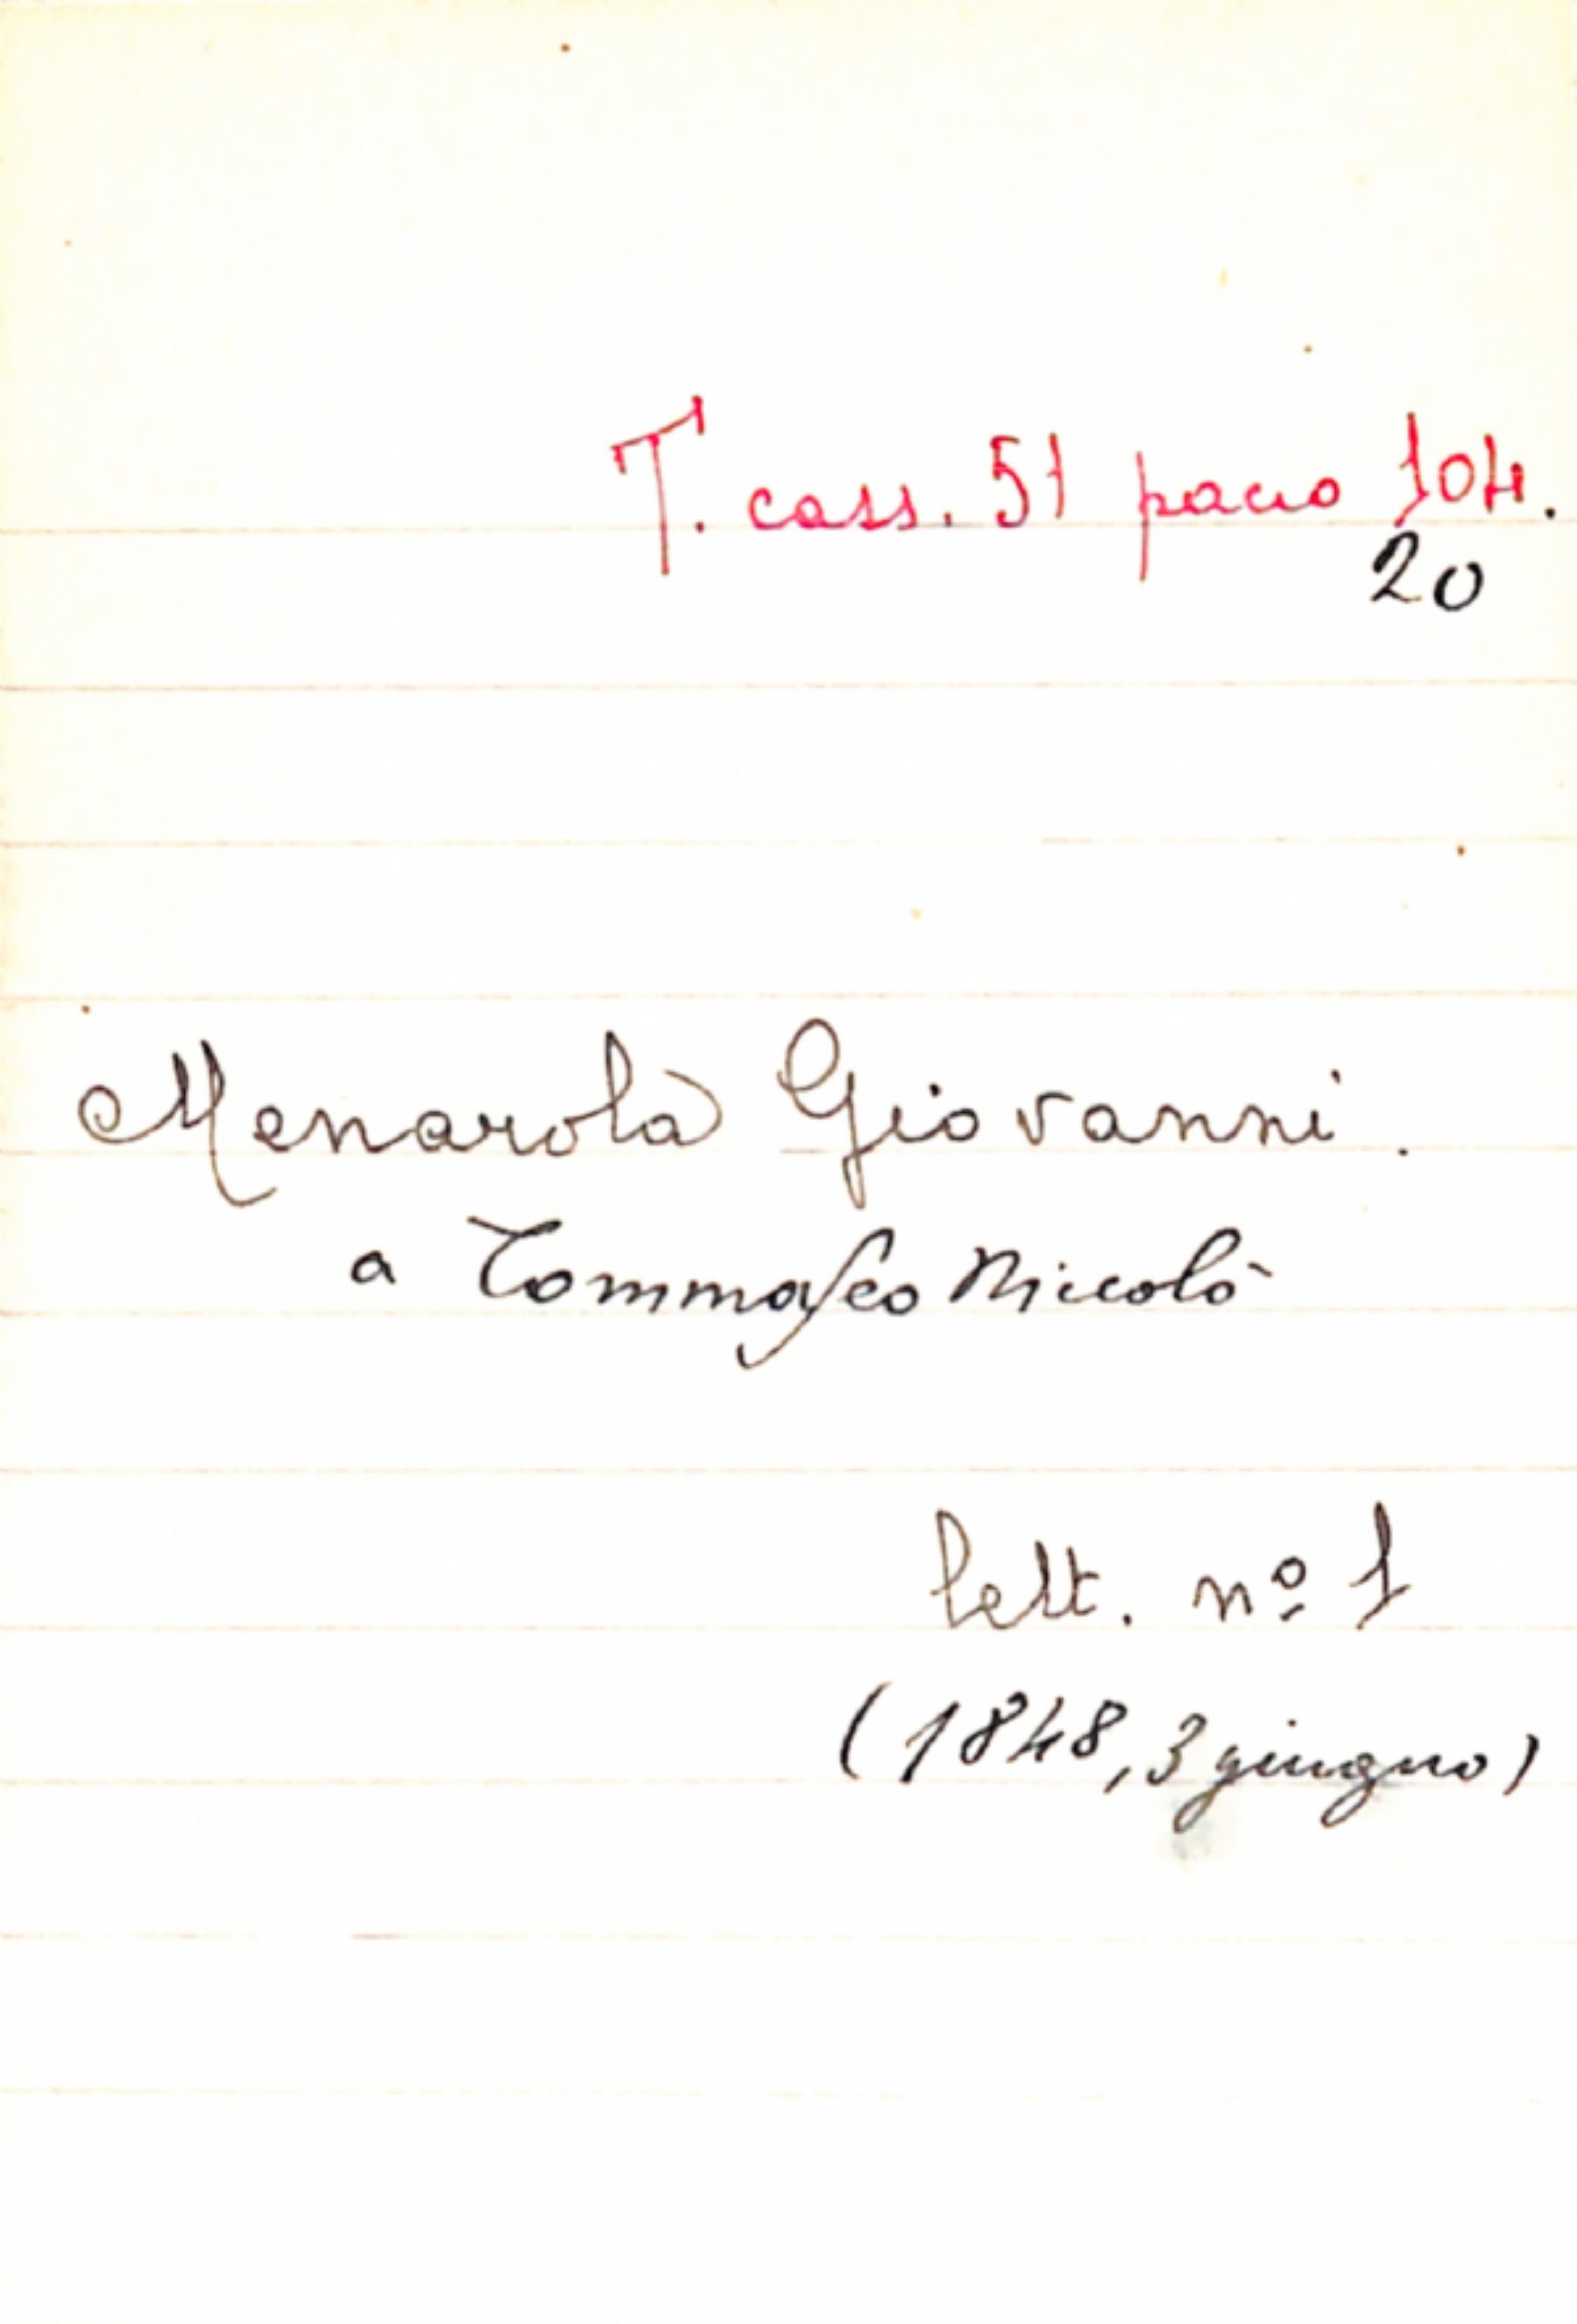 T. cass. 51 pacco 104.
20
Menarolà Giovanni.
a Tommaseo Niccolò
lett. nº 1
(1848, 3 giugno)